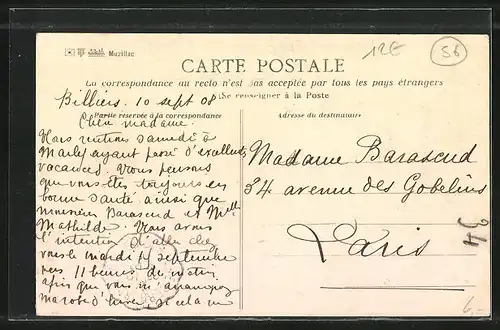 Muzillac
12E
56
CARTE POSTALE
La correspondance au recto n'est pas acceptée par tous les pays étrangers
Se renseigner à la Poste
Billiers. 10 sept 08
Partie réservée à la correspondance
Adresse du destinataire
Chère madame.
Nous rentrons samedi à
Marly ayant passé d'excellentes
vacances. Nous pensons
que vous êtes toujours en
bonne santé ainsi que
monsieur Barascud et Melle
Mathilde. Nous avons
l'intention d'aller chez
vous le mardi septembre
vers 11 heures du matin
afin que vous m'
ma robe d'hiver si cela ne
Madame Barascud
34 avenue des Gobelins
Paris
34
6,-